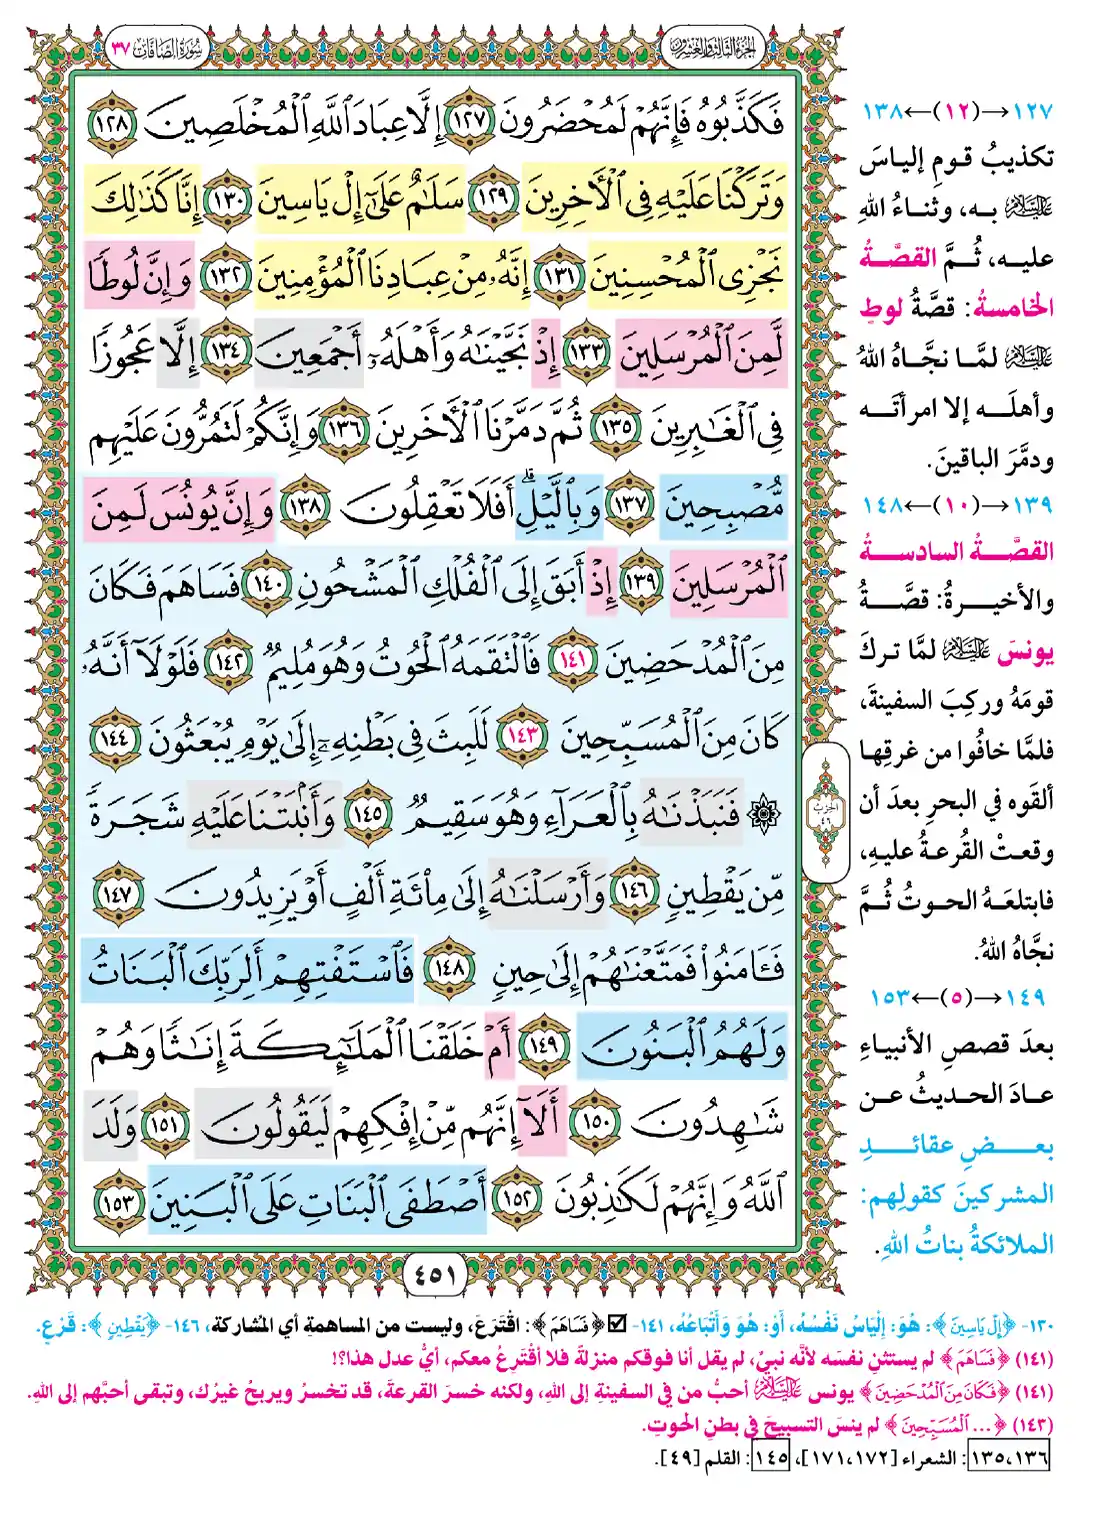 الجزء الثالث والعشرون
سورة الصافات ٣٧
فَكَذَّبُوهُ فَإِنَّهُمْ لَمُحْضَرُونَ ١٢٧ إِلَّا عِبَادَ ٱللَّهِ ٱلْمُخْلَصِينَ ١٢٨
وَتَرَكْنَا عَلَيْهِ فِى ٱلْأَخِرِينَ ١٢٩ سَلَٰمٌ عَلَىٰٓ إِلْ يَاسِينَ ١٣٠ إِنَّا كَذَٰلِكَ
نَجْزِى ٱلْمُحْسِنِينَ ١٣١ إِنَّهُۥ مِنْ عِبَادِنَا ٱلْمُؤْمِنِينَ ١٣٢ وَإِنَّ لُوطًا
لَّمِنَ ٱلْمُرْسَلِينَ ١٣٣ إِذْ نَجَّيْنَٰهُ وَأَهْلَهُۥٓ أَجْمَعِينَ ١٣٤ إِلَّا عَجُوزًا
فِى ٱلْغَٰبِرِينَ ١٣٥ ثُمَّ دَمَّرْنَا ٱلْأَخَرِينَ ١٣٦ وَإِنَّكُمْ لَتَمُرُّونَ عَلَيْهِم
مُّصْبِحِينَ ١٣٧ وَبِٱلَّيْلِۗ أَفَلَا تَعْقِلُونَ ١٣٨ وَإِنَّ يُونُسَ لَمِنَ
ٱلْمُرْسَلِينَ ١٣٩ إِذْ أَبَقَ إِلَى ٱلْفُلْكِ ٱلْمَشْحُونِ ١٤٠ فَسَاهَمَ فَكَانَ
مِنَ ٱلْمُدْحَضِينَ ١٤١ فَٱلْتَقَمَهُ ٱلْحُوتُ وَهُوَ مُلِيمٌ ١٤٢ فَلَوْلَآ أَنَّهُۥ
كَانَ مِنَ ٱلْمُسَبِّحِينَ ١٤٣ لَلَبِثَ فِى بَطْنِهِۦٓ إِلَىٰ يَوْمِ يُبْعَثُونَ ١٤٤
۞ فَنَبَذْنَٰهُ بِٱلْعَرَآءِ وَهُوَ سَقِيمٌ ١٤٥ وَأَنۢبَتْنَا عَلَيْهِ شَجَرَةً
مِّن يَقْطِينٍ ١٤٦ وَأَرْسَلْنَٰهُ إِلَىٰ مِا۟ئَةِ أَلْفٍ أَوْ يَزِيدُونَ ١٤٧
فَـَٔامَنُوا۟ فَمَتَّعْنَٰهُمْ إِلَىٰ حِينٍ ١٤٨ فَٱسْتَفْتِهِمْ أَلِرَبِّكَ ٱلْبَنَاتُ
وَلَهُمُ ٱلْبَنُونَ ١٤٩ أَمْ خَلَقْنَا ٱلْمَلَٰٓئِكَةَ إِنَٰثًا وَهُمْ
شَٰهِدُونَ ١٥٠ أَلَآ إِنَّهُم مِّنْ إِفْكِهِمْ لَيَقُولُونَ ١٥١ وَلَدَ
ٱللَّهُ وَإِنَّهُمْ لَكَٰذِبُونَ ١٥٢ أَصْطَفَى ٱلْبَنَاتِ عَلَى ٱلْبَنِينَ ١٥٣
الحزب
٤٦
٤٥١
١٢٧→(١٢)←١٣٨
تكذيبُ قومِ إلياسَ
عليه السلام به، وثناءُ اللهِ
عليه، ثُمَّ القصَّةُ
الخامسةُ: قصَّةُ لوطٍ
عليه السلام لمَّا نجَّاهُ اللهُ
وأهلَه إلا امرأتَه
ودمَّرَ الباقينَ.
١٣٩→(١٠)←١٤٨
القصَّةُ السادسةُ
والأخيرةُ: قصَّةُ
يونسَ عليه السلام لمَّا تركَ
قومَهُ وركِبَ السفينةَ،
فلمَّا خافُوا من غرقِها
ألقَوه في البحرِ بعدَ أن
وقعتْ القُرعةُ عليهِ،
فابتلعَهُ الحوتُ ثُمَّ
نجَّاهُ اللهُ.
١٤٩→(٥)←١٥٣
بعدَ قصصِ الأنبياءِ
عادَ الحديثُ عن
بعضِ عقائدِ
المشركينَ كقولِهم:
الملائكةُ بناتُ اللهِ.
١٣٠- ﴿إِلْ يَاسِينَ﴾: هُوَ: إِلْيَاسُ نَفْسُهُ، أَوْ: هُوَ وَأَتْبَاعُهُ، ١٤١- ☑ ﴿فَسَاهَمَ﴾: اقْتَرَعَ، وليست من المساهمةِ أي المُشاركة، ١٤٦- ﴿يَقْطِينٍ﴾: قَرْعٍ.
(١٤١) ﴿فَسَاهَمَ﴾ لم يستثنِ نفسَه لأنَّه نبيٌ، لم يقل أنا فوقكم منزلةً فلا أقترعُ معكم، أيُّ عدل هذا؟!
(١٤١) ﴿فَكَانَ مِنَ ٱلْمُدْحَضِينَ﴾ يونس عليه السلام أحبُّ من في السفينةِ إلى اللهِ، ولكنه خسرَ القرعةَ، قد تخسرُ ويربحُ غيرُك، وتبقى أحبَّهم إلى اللهِ.
(١٤٣) ﴿... ٱلْمُسَبِّحِينَ﴾ لم ينسَ التسبيحَ في بطنِ الحوتِ.
١٣٥،١٣٦: الشعراء [١٧١،١٧٢]، ١٤٥: القلم [٤٩].